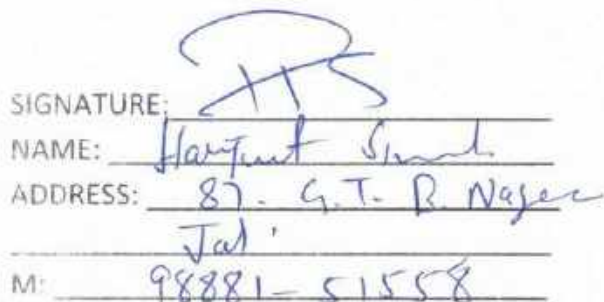 SIGNATURE:
NAME: Harjint Singh
ADDRESS: 87- G.T. B. Nagar
Jal'
M: 98881-51558